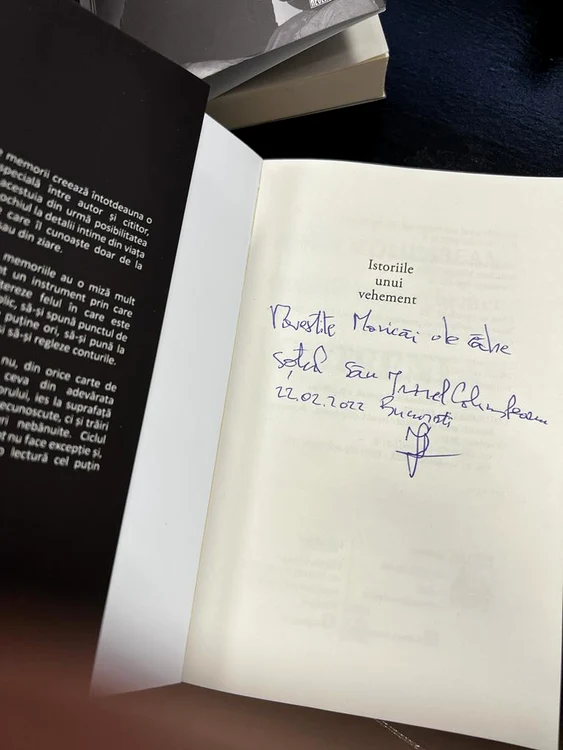 memorii creează întotdeauna o
specială între autor și cititor,
acestuia din urmă posibilitatea
ochiul la detalii intime din viața
care îl cunoaște doar de la
sau din ziare.
memoriile au o miză mult
un instrument prin care
felul în care este
să-și spună punctul de
puține ori, să-și pună la
să-și regleze conturile.
nu, din orice carte de
ceva din adevărata
ies la suprafață
ci și trăiri
nebănuite. Ciclul
nu face excepție și,
o lectură cel puțin
Istoriile
unui
vehement
Povestite Maricai de către
soțul său
22.02.2022 București